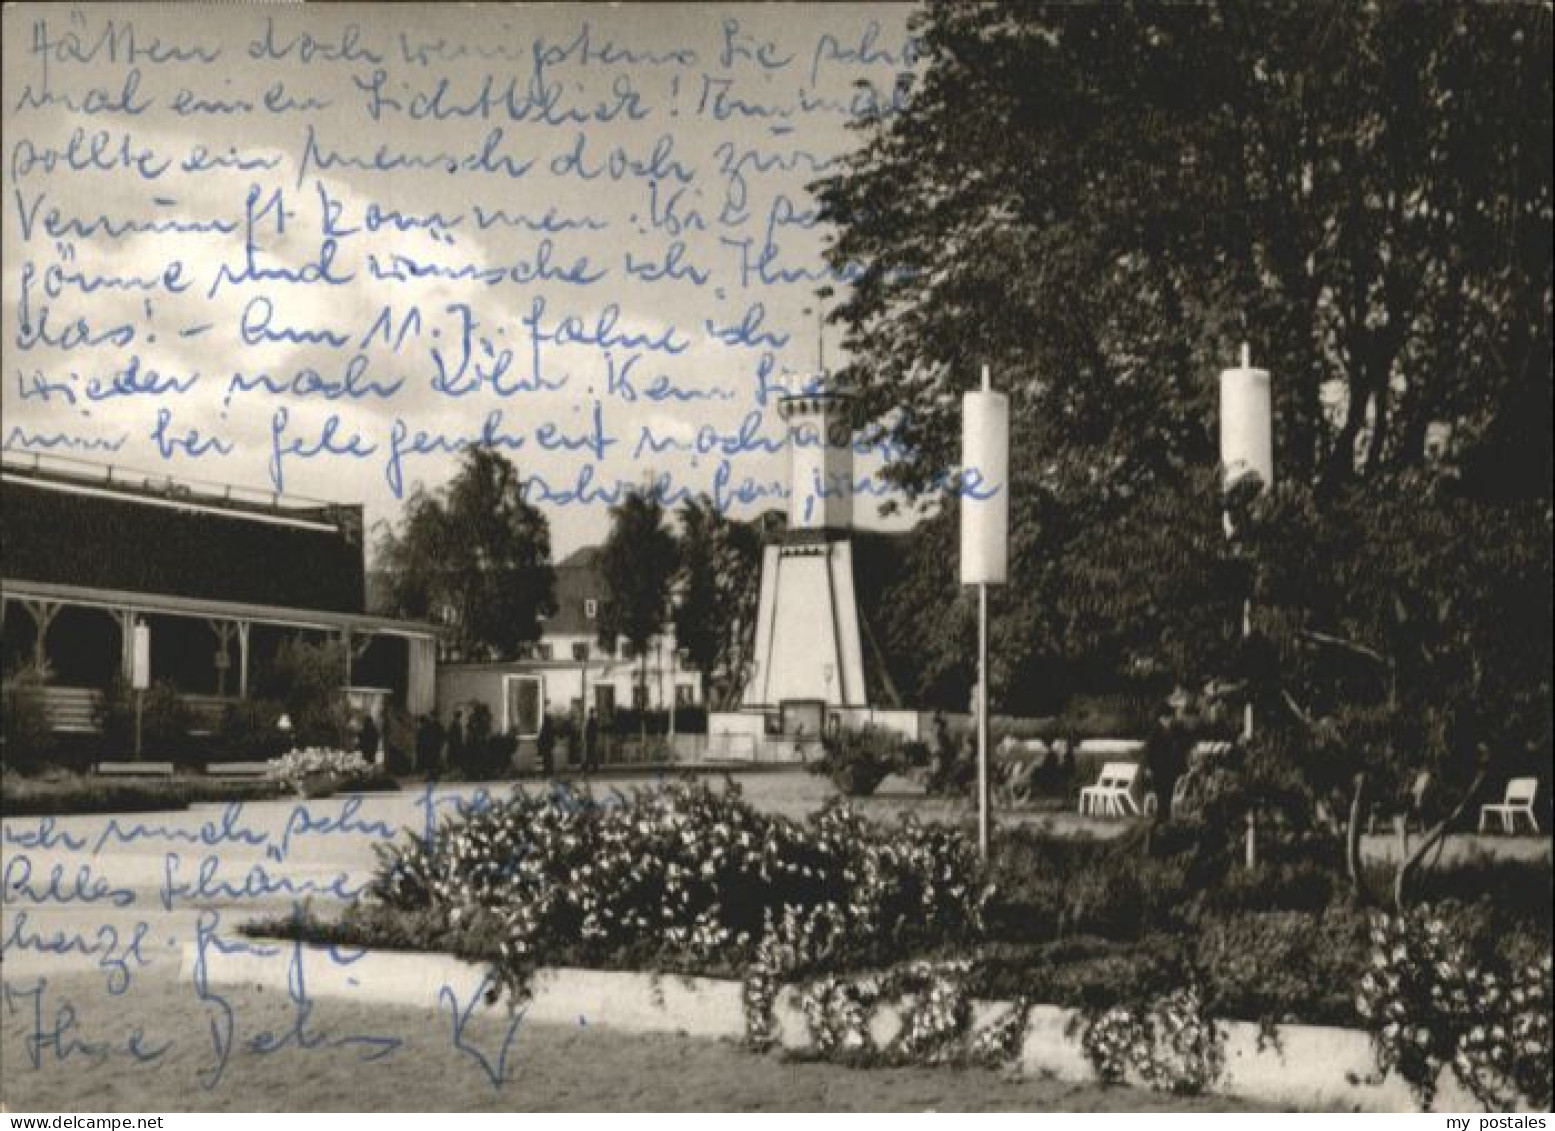 Hätten doch wenigstens Sie schon
mal einen Lichtblick! Einmal
sollte ein Mensch doch zur
Vernunft kommen. Wie sehr
gönne und wünsche ich Ihnen
das! - Am 11.7. fahre ich
wieder nach Köln. Wenn Sie
mir bei Gelegenheit nochmal
schreiben, würde
ich mich sehr freuen
Alles Schöne
herzl. Grüße
Ihre
my postales